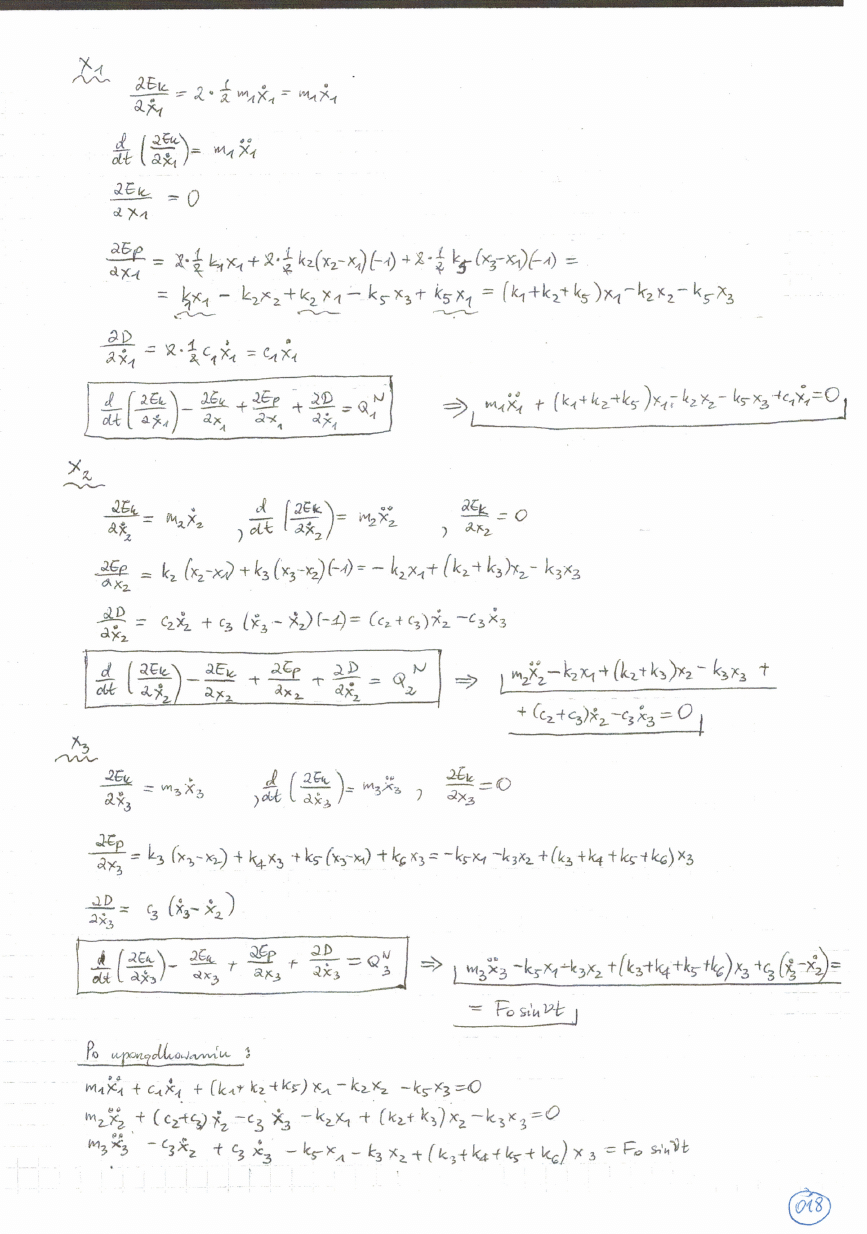 x₁
∂Ek/∂ẋ₁ = 2·1/2 m₁ẋ₁ = m₁ẋ₁
d/dt (∂Ek/∂ẋ₁) = m₁ẍ₁
∂Ek/∂x₁ = 0
∂Ep/∂x₁ = 2·1/2 k₁x₁ + 2·1/2 k₂(x₂-x₁)(-1) + 2·1/2 k₅(x₃-x₁)(-1) =
= k₁x₁ - k₂x₂ + k₂x₁ - k₅x₃ + k₅x₁ = (k₁+k₂+k₅)x₁ - k₂x₂ - k₅x₃
∂D/∂ẋ₁ = 2·1/2 c₁ẋ₁ = c₁ẋ₁
d/dt (∂Ek/∂ẋ₁) - ∂Ek/∂x₁ + ∂Ep/∂x₁ + ∂D/∂ẋ₁ = Q₁ᴺ ⇒ m₁ẍ₁ + (k₁+k₂+k₅)x₁ - k₂x₂ - k₅x₃ + c₁ẋ₁ = 0
x₂
∂Ek/∂ẋ₂ = m₂ẋ₂ , d/dt (∂Ek/∂ẋ₂) = m₂ẍ₂ , ∂Ek/∂x₂ = 0
∂Ep/∂x₂ = k₂(x₂-x₁) + k₃(x₃-x₂)(-1) = -k₂x₁ + (k₂+k₃)x₂ - k₃x₃
∂D/∂ẋ₂ = c₂ẋ₂ + c₃(ẋ₃ - ẋ₂)(-1) = (c₂+c₃)ẋ₂ - c₃ẋ₃
d/dt (∂Ek/∂ẋ₂) - ∂Ek/∂x₂ + ∂Ep/∂x₂ + ∂D/∂ẋ₂ = Q₂ᴺ ⇒ m₂ẍ₂ - k₂x₁ + (k₂+k₃)x₂ - k₃x₃ +
+ (c₂+c₃)ẋ₂ - c₃ẋ₃ = 0
x₃
∂Ek/∂ẋ₃ = m₃ẋ₃ , d/dt (∂Ek/∂ẋ₃) = m₃ẍ₃ , ∂Ek/∂x₃ = 0
∂Ep/∂x₃ = k₃(x₃-x₂) + k₄x₃ + k₅(x₃-x₁) + k₆x₃ = -k₅x₁ - k₃x₂ + (k₃+k₄+k₅+k₆)x₃
∂D/∂ẋ₃ = c₃(ẋ₃ - ẋ₂)
d/dt (∂Ek/∂ẋ₃) - ∂Ek/∂x₃ + ∂Ep/∂x₃ + ∂D/∂ẋ₃ = Q₃ᴺ ⇒ m₃ẍ₃ - k₅x₁ - k₃x₂ + (k₃+k₄+k₅+k₆)x₃ + c₃(ẋ₃-ẋ₂) =
= F₀ sin νt
Po uporządkowaniu :
m₁ẍ₁ + c₁ẋ₁ + (k₁+k₂+k₅)x₁ - k₂x₂ - k₅x₃ = 0
m₂ẍ₂ + (c₂+c₃)ẋ₂ - c₃ẋ₃ - k₂x₁ + (k₂+k₃)x₂ - k₃x₃ = 0
m₃ẍ₃ - c₃ẋ₂ + c₃ẋ₃ - k₅x₁ - k₃x₂ + (k₃+k₄+k₅+k₆)x₃ = F₀ sin νt
018